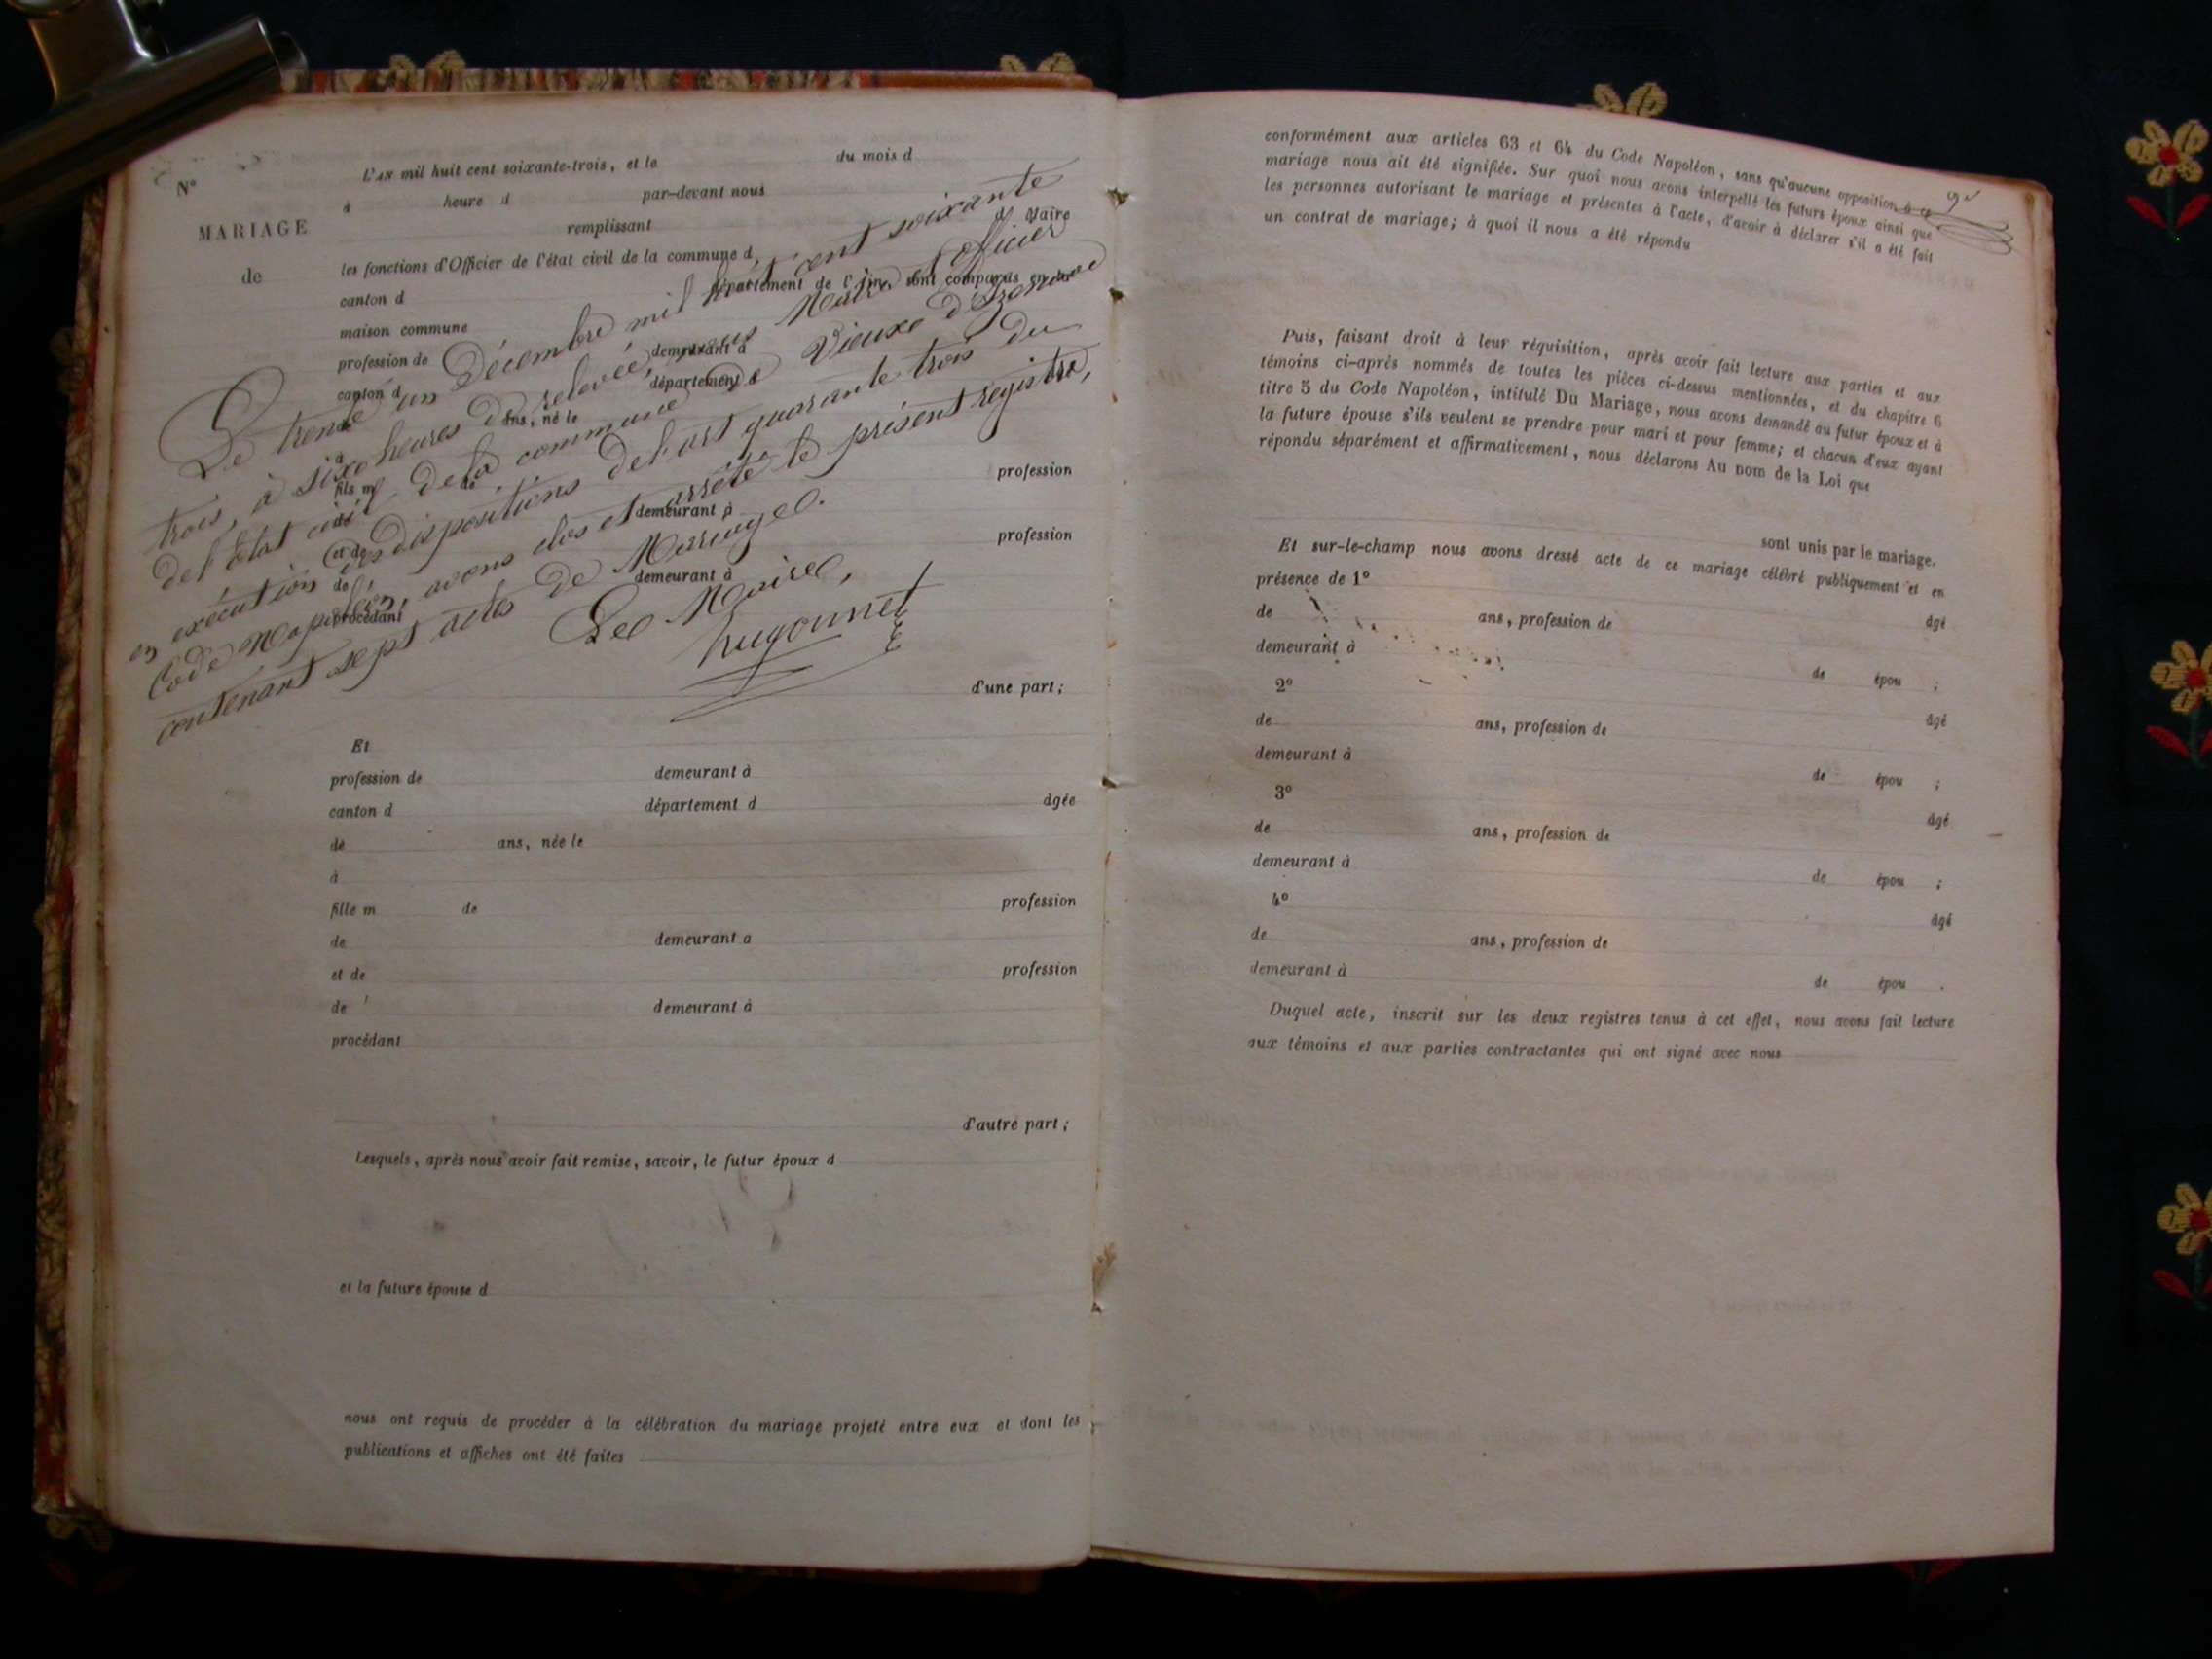 L'AN mil huit cent soixante-trois, et le du mois d
N°
à heure d par-devant nous
MARIAGE
remplissant d Maire
de
les fonctions d'Officier de l'état civil de la commune d
canton d département de l'Ain, sont comparus en la
maison commune
profession de demeurant à
canton d département d
ans, né le
à
fils m de profession
de demeurant à
et de profession
de demeurant à
procédant
d'une part ;
Le trente un Décembre mil huit cent soixante
trois, à six heures de relevée, nous Maire & officier
de l'état civil de la commune de Vieux d'Izenave
en exécution des dispositions de l'art quarante trois du
Code Napoléon, avons clos et arrêté le présent registre,
contenant sept actes de Mariage.
Le Maire,
hugonnet
Et
profession de demeurant à
canton d département d âgée
de ans, née le
à
fille m de profession
de demeurant a
et de profession
de demeurant à
procédant
d'autre part ;
Lesquels, après nous avoir fait remise, savoir, le futur époux d
et la future épouse d
nous ont requis de procéder à la célébration du mariage projeté entre eux et dont les
publications et affiches ont été faites
conformément aux articles 63 et 64 du Code Napoléon, sans qu'aucune opposition à ce
mariage nous ait été signifiée. Sur quoi nous avons interpellé les futurs époux ainsi que
les personnes autorisant le mariage et présentes à l'acte, d'avoir à déclarer s'il a été fait
un contrat de mariage; à quoi il nous a été répondu
Puis, faisant droit à leur réquisition, après avoir fait lecture aux parties et aux
témoins ci-après nommés de toutes les pièces ci-dessus mentionnées, et du chapitre 6
titre 5 du Code Napoléon, intitulé Du Mariage, nous avons demandé au futur époux et à
la future épouse s'ils veulent se prendre pour mari et pour femme; et chacun d'eux ayant
répondu séparément et affirmativement, nous déclarons Au nom de la Loi que
sont unis par le mariage.
Et sur-le-champ nous avons dressé acte de ce mariage célébré publiquement et en
présence de 1° âgé
de ans, profession de
demeurant à de épou ;
2° âgé
de ans, profession de
demeurant à de épou ;
3° âgé
de ans, profession de
demeurant à de épou ;
4° âgé
de ans, profession de
demeurant à de épou .
Duquel acte, inscrit sur les deux registres tenus à cet effet, nous avons fait lecture
aux témoins et aux parties contractantes qui ont signé avec nous